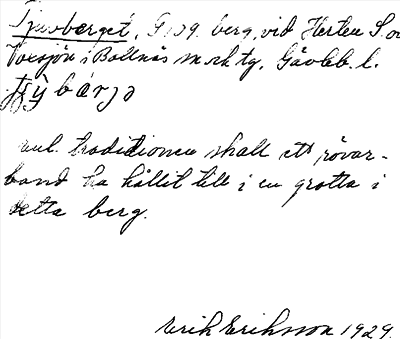 Tjuvberget, G berg, vid Herten S. o
i Bollnäs m. rk tg, Gävleb. l.
enl. traditionen skall ett rövar-
band ha hållit till i en grotta i
detta berg.
Erik Eriksson 1929.